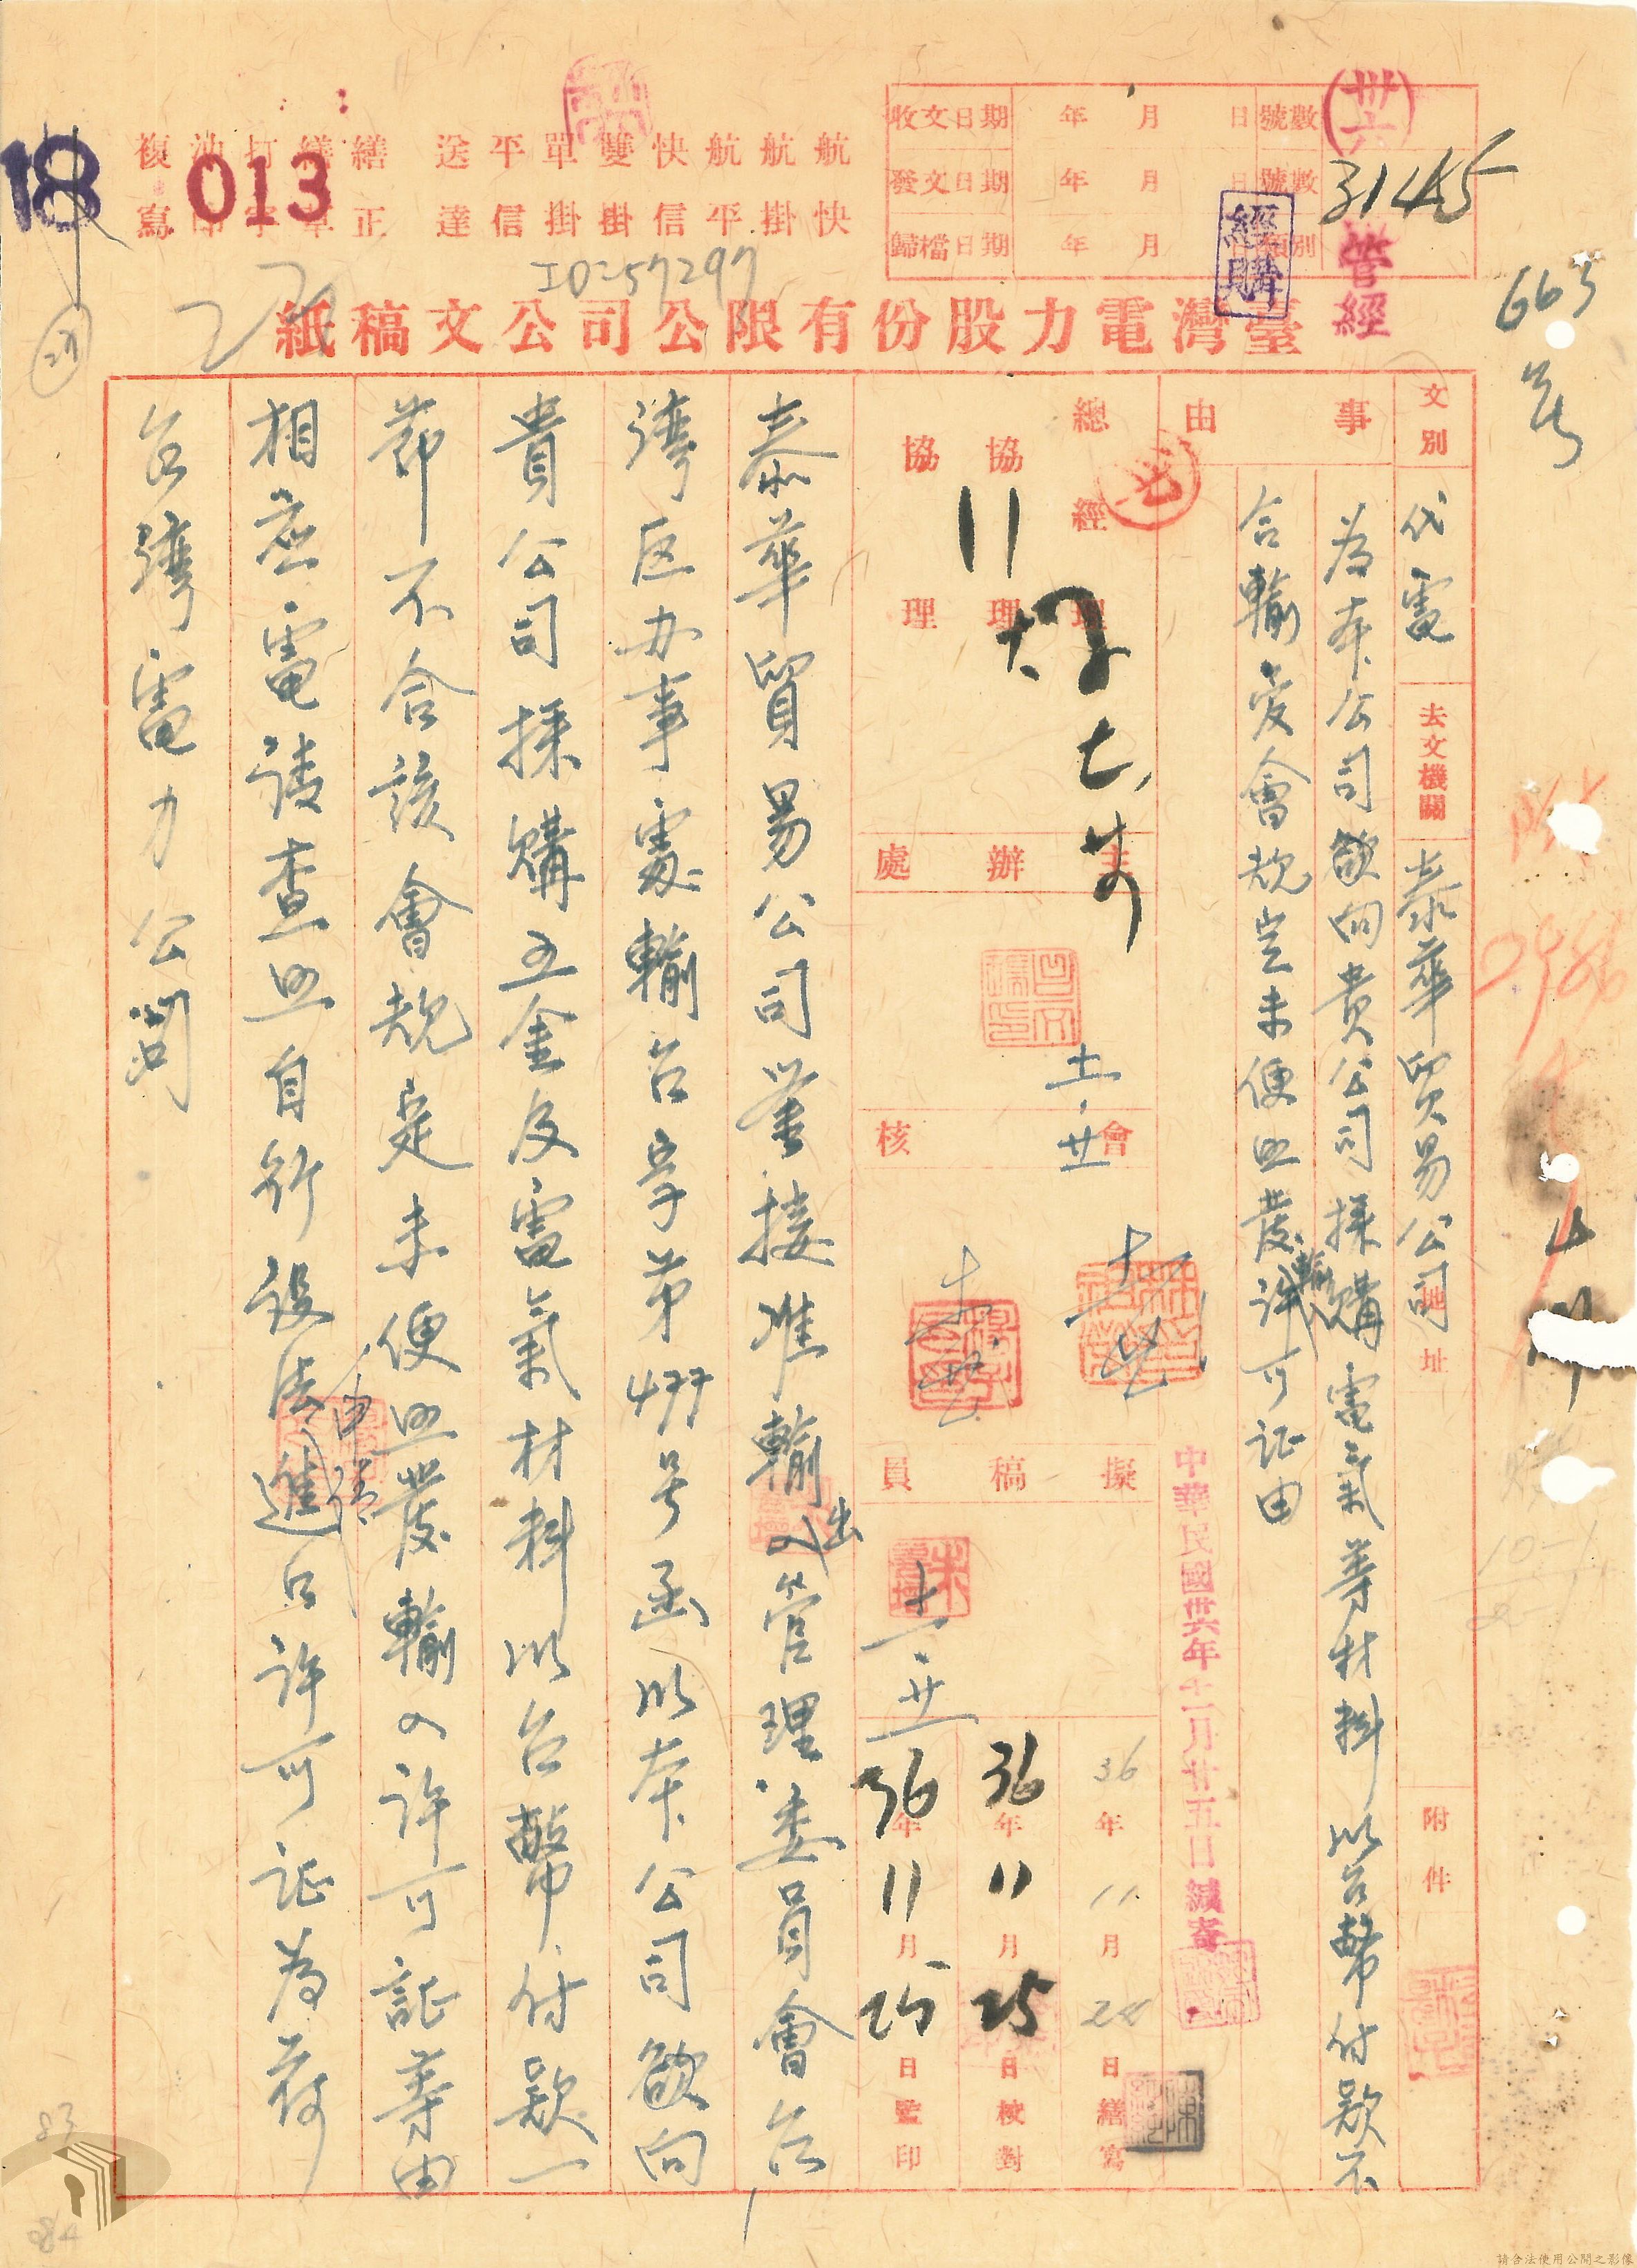 收文日期 年 月 日 號數
發文日期 年 月 日 號數
歸檔日期 年 月 日 類別
(卅六)
31445
管經
經購
航航航快雙單平送 繕繕打油複
快掛平信掛掛信達 正草字印寫
18
013
ID=57297
663
臺灣電力股份有限公司公文稿紙
文別
代電
去文機關
泰華貿易公司
地址
附件
事由
為本公司欲向貴公司採購電氣等材料以台幣付款不
合輸委會規定未便照發輸入許可証由
總經理
協理
協理
主辦處
會核
擬稿員
中華民國卅六年十一月廿五日 緘寄
十一.廿
36年11月24日繕寫
36年11月25日校對
36年11月25日監印
泰華貿易公司公鑒接准輸出入管理委員會台
灣區办事處輸台字第477号函以本公司欲向
貴公司採購五金及電氣材料以台幣付款一
節不合該會規定未便照發輸入許可証等由
相應電請查照自行設法申請進口許可証為荷
台灣電力公司
27
83
084
請合法使用公開之影像